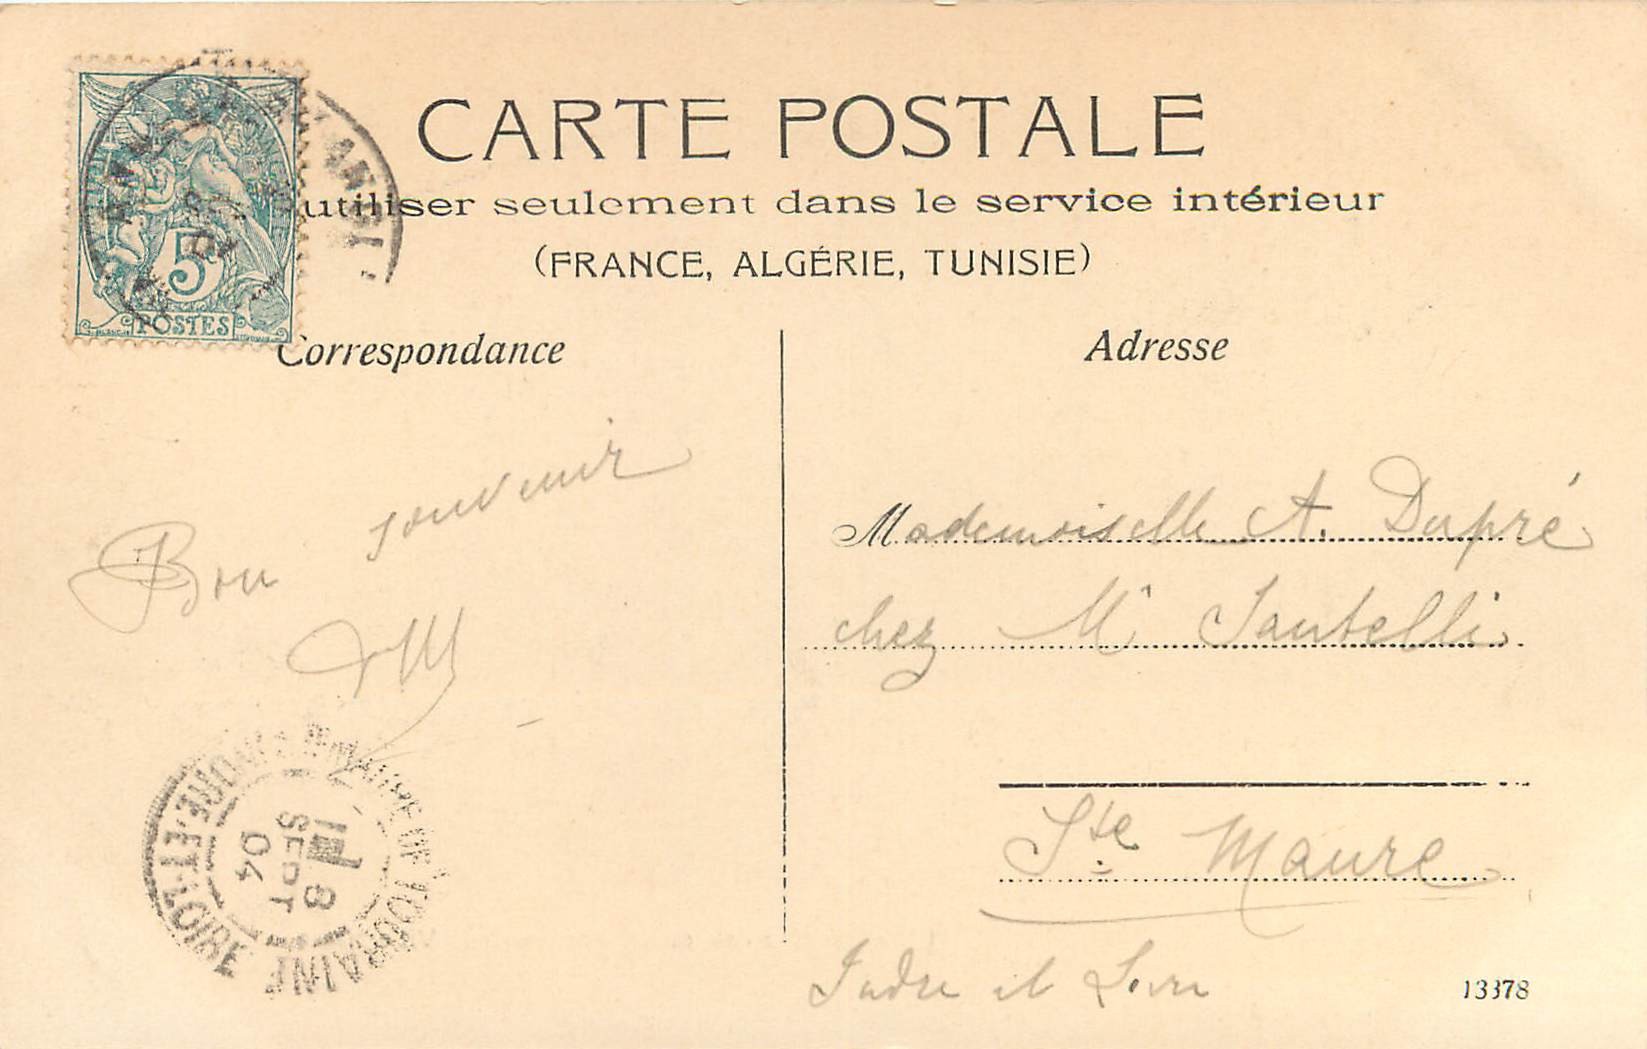 CARTE POSTALE
utiliser seulement dans le service intérieur
(FRANCE, ALGÉRIE, TUNISIE)
5
POSTES
Correspondance
Adresse
Bon souvenir
Mademoiselle A. Dupré
chez Mr Santelli
Ste Maure
Indre et Loire
13378
INDRE-ET-LOIRE
MAURE DE TOURAINE
8
SEPT
04